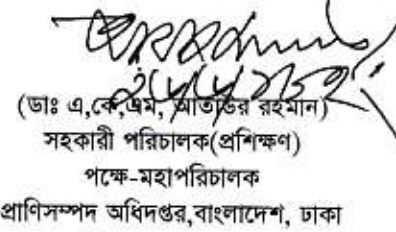 (ডাঃ এ,কে,এম, আতাউর রহমান)
সহকারী পরিচালক(প্রশিক্ষণ)
পক্ষে-মহাপরিচালক
প্রাণিসম্পদ অধিদপ্তর,বাংলাদেশ, ঢাকা